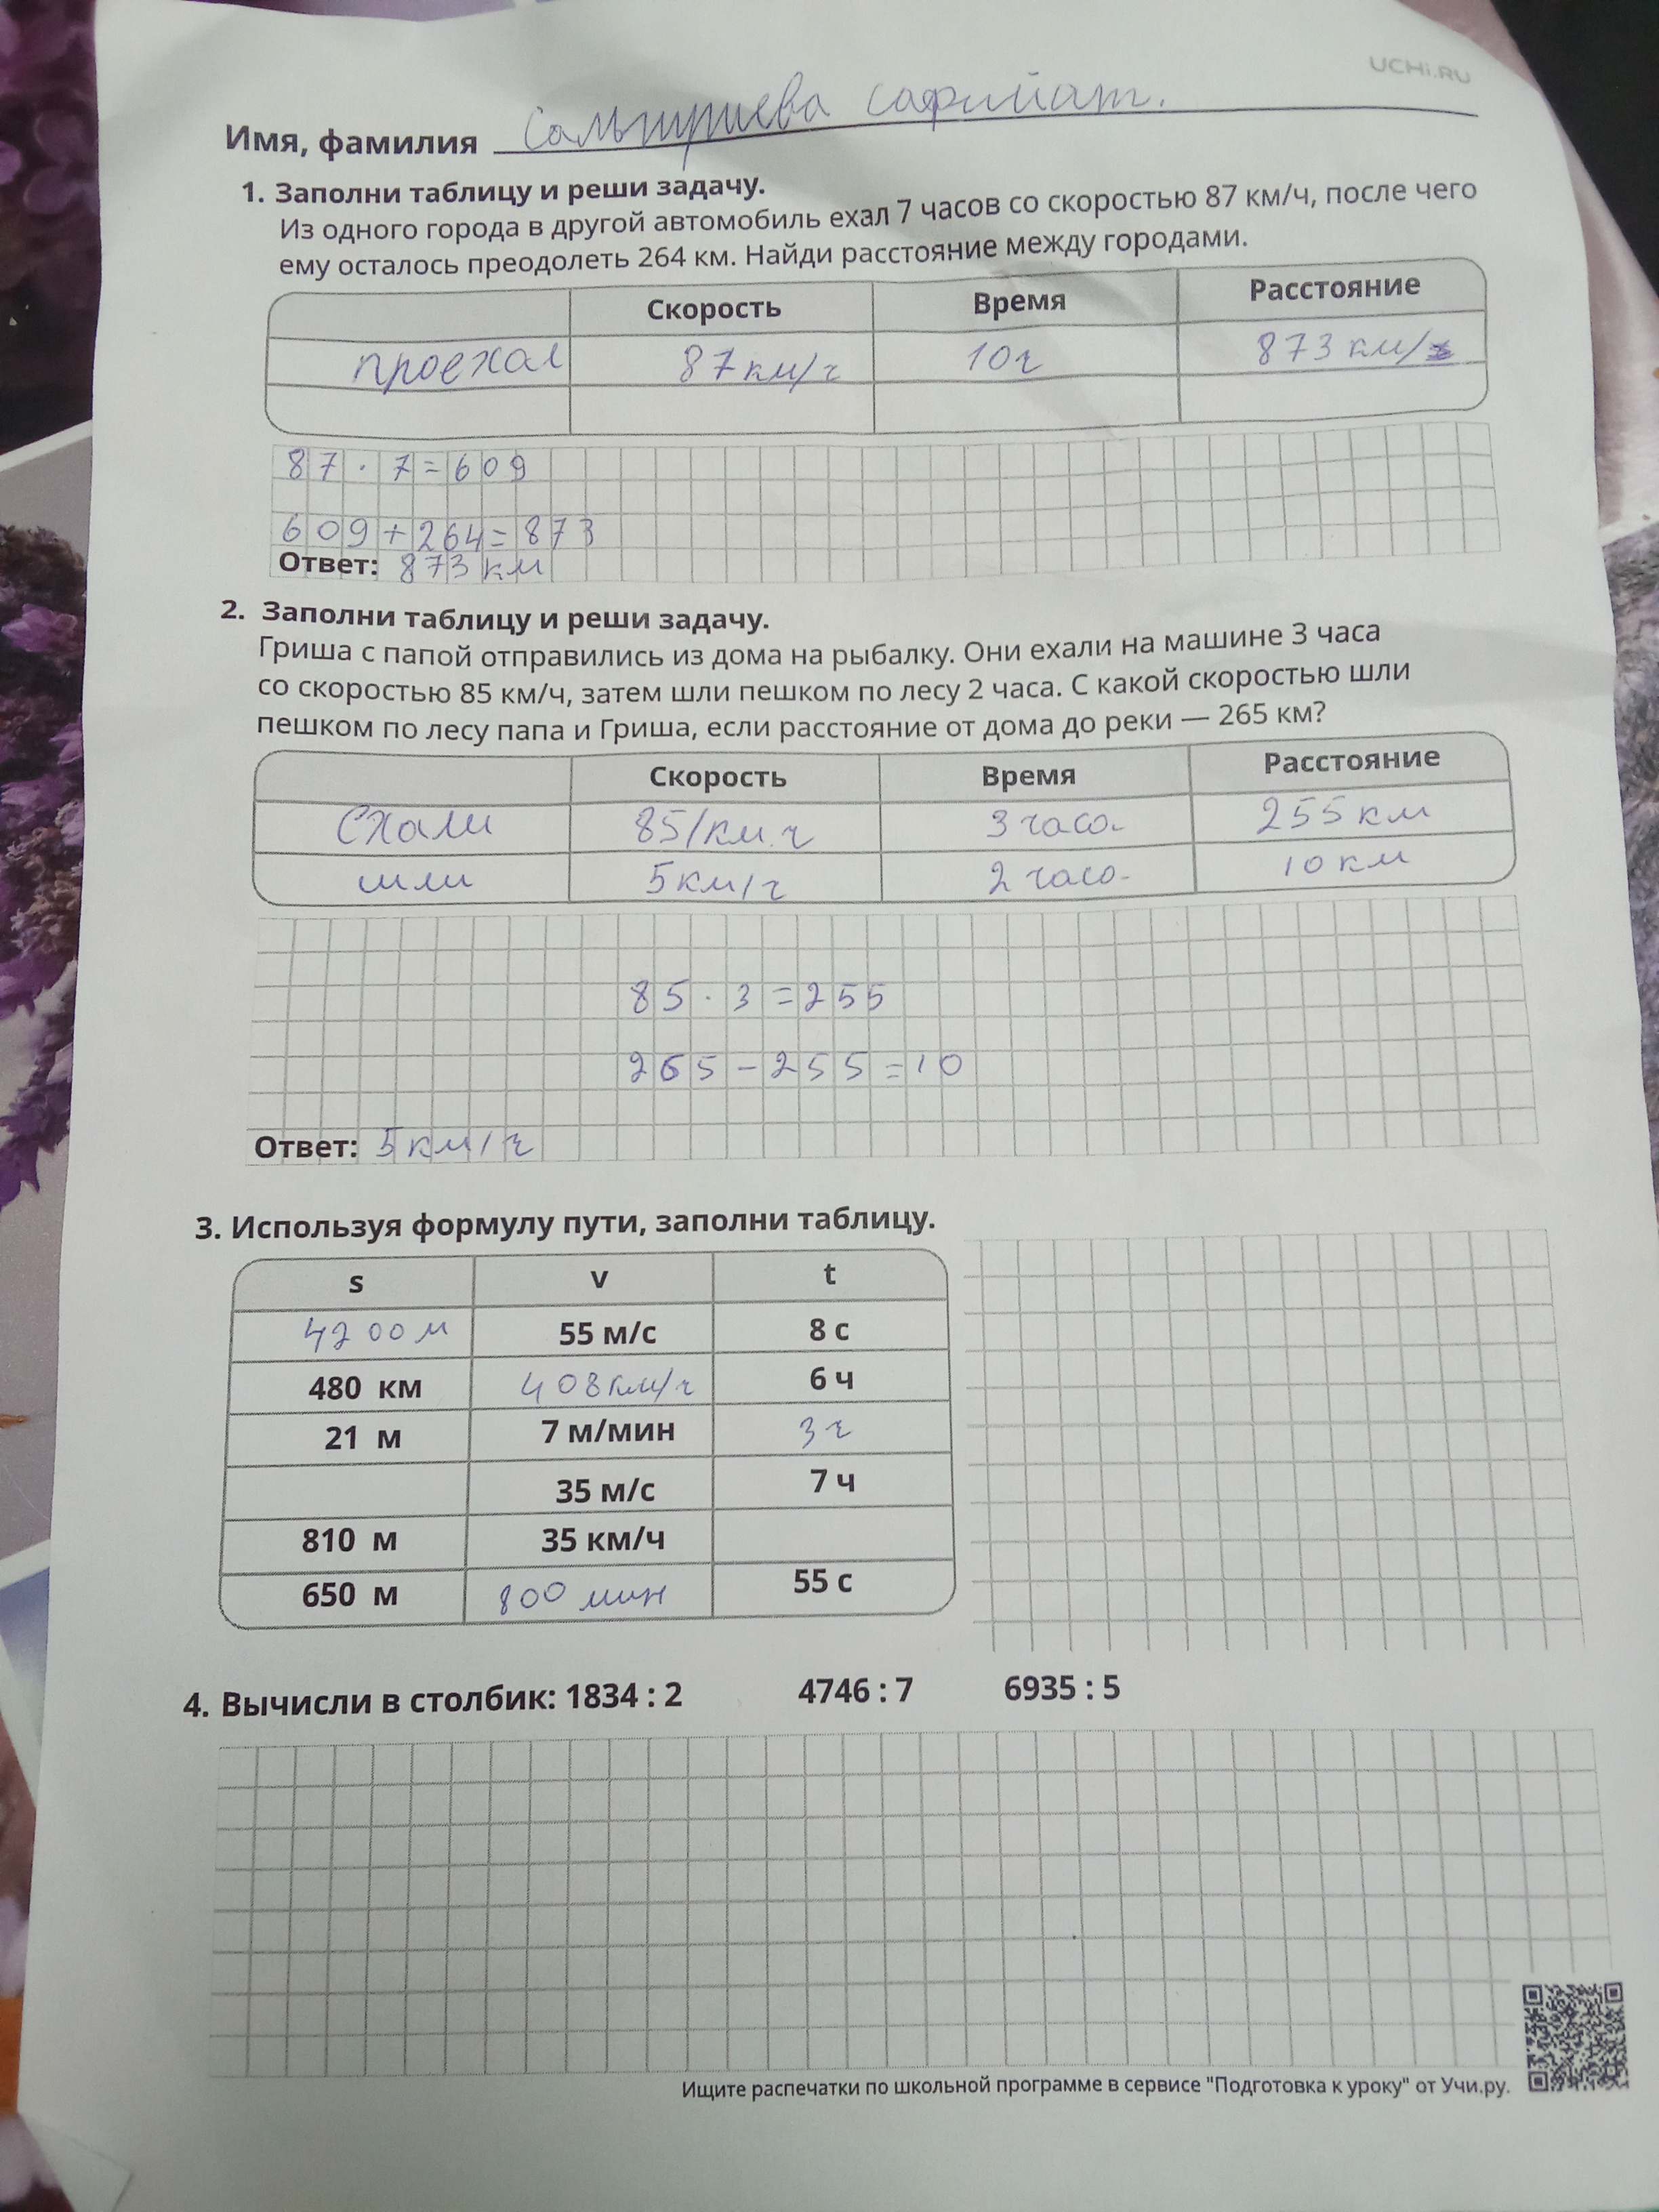 UCHi.RU
Имя, фамилия
1. Заполни таблицу и реши задачу.
Из одного города в другой автомобиль ехал 7 часов со скоростью 87 км/ч, после чего
ему осталось преодолеть 264 км. Найди расстояние между городами.
Скорость Время Расстояние
проехал 87км/ч 10ч 873 км/
87 · 7 = 609
609 + 264 = 873
Ответ: 873 км
2. Заполни таблицу и реши задачу.
Гриша с папой отправились из дома на рыбалку. Они ехали на машине 3 часа
со скоростью 85 км/ч, затем шли пешком по лесу 2 часа. С какой скоростью шли
пешком по лесу папа и Гриша, если расстояние от дома до реки — 265 км?
Скорость Время Расстояние
Ехали 85/км.ч 3 часа 255 км
шли 5км/ч 2 часа 10 км
85 · 3 = 255
265 - 255 = 10
Ответ: 5 км/ч
3. Используя формулу пути, заполни таблицу.
s v t
4200 м 55 м/с 8 с
480 км 408км/ч 6 ч
21 м 7 м/мин 3 ч
35 м/с 7 ч
810 м 35 км/ч
650 м 800 мин 55 с
4. Вычисли в столбик: 1834 : 2 4746 : 7 6935 : 5
Ищите распечатки по школьной программе в сервисе "Подготовка к уроку" от Учи.ру.